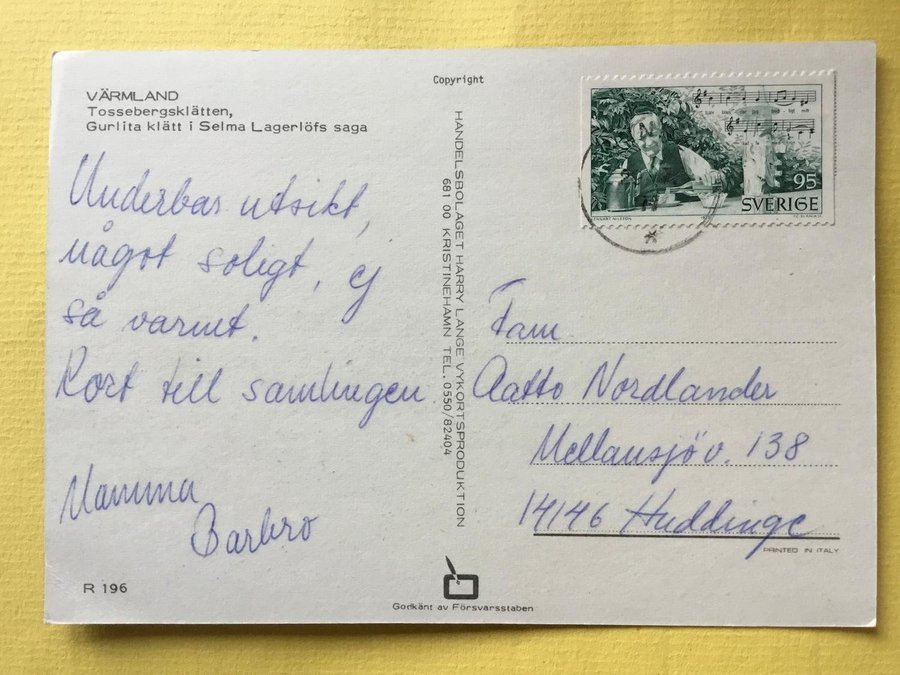 VÄRMLAND
Tossebergsklätten,
Gurlita klätt i Selma Lagerlöfs saga
Underbar utsikt,
något soligt, ej
så varmt.
Kort till samlingen
Mamma
Barbro
R 196
Copyright
HANDELSBOLAGET HARRY LANGE VYKORTSPRODUKTION
681 00 KRISTINEHAMN TEL. 0550/82404
Godkänt av Försvarsstaben
95
SVERIGE
LENNART NILSSON
Fam
Aatto Nordlander
Mellansjöv. 138
14146 Huddinge
PRINTED IN ITALY